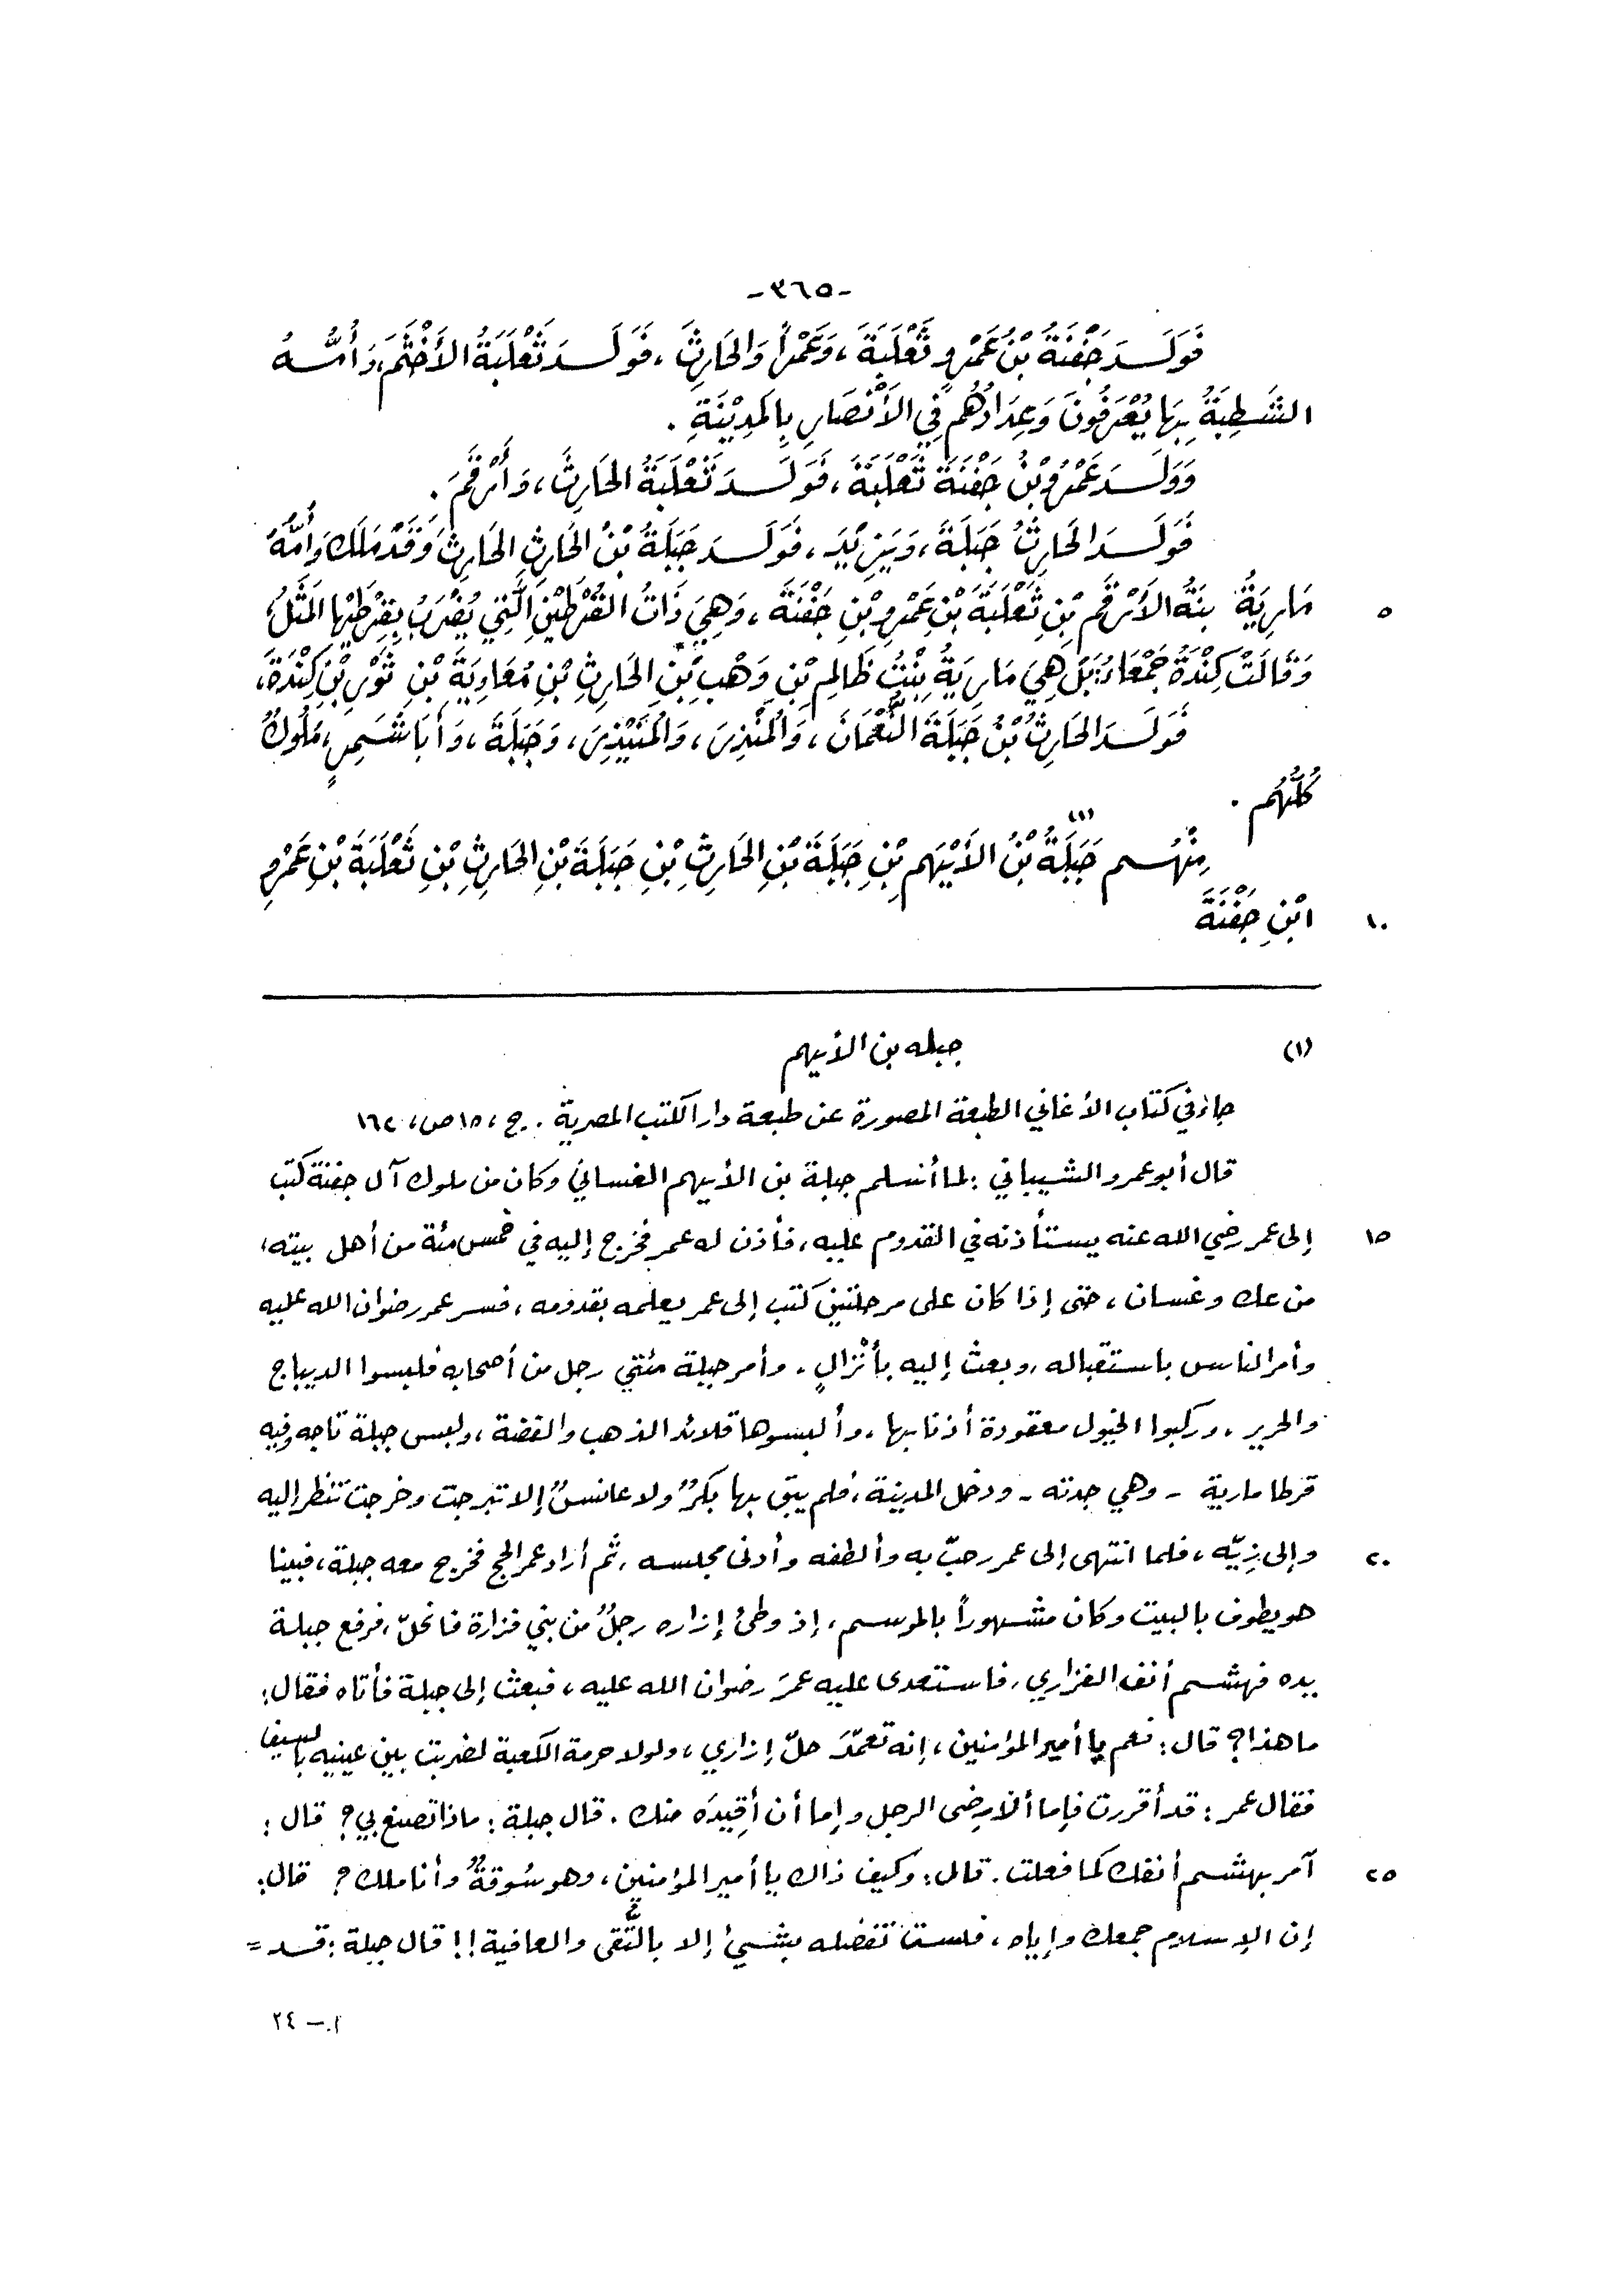 -٣٦٥-
فَوَلَدَ جَفْنَةُ بْنُ عَمْرٍو ثَعْلَبَةَ، وَعَمْراً وَالحَارِثَ، فَوَلَدَ ثَعْلَبَةُ الأَخْثَمَ، وَأُمُّهُ
الشَّطِبَةُ بِهَا يُعْرَفُونَ وَعِدَادُهُمْ فِي الأَنْصَارِ بِالمَدِيْنَةِ .
وَوَلَدَ عَمْرُو بْنُ جَفْنَةَ ثَعْلَبَةَ، فَوَلَدَ ثَعْلَبَةُ الحَارِثَ، وَأَرْقَمَ .
فَوَلَدَ الحَارِثُ جَبَلَةَ، وَيَزِيْدَ، فَوَلَدَ جَبَلَةُ بْنُ الحَارِثِ الحَارِثَ وَقَدْ مَلَكَ وَأُمُّهُ
٥ مَارِيَةُ بِنَةُ الأَرْقَمِ بْنِ ثَعْلَبَةَ بْنِ عَمْرِو بْنِ جَفْنَةَ، وَهِيَ ذَاتُ القُرْطَيْنِ الَّتِي يُضْرَبُ بِقِرْطَيْهَا المَثَلُ،
وَقَالَتْ كِنْدَةُ جَمْعَاءُ: بَلْ هِيَ مَارِيَةُ بِنْتُ ظَالِمِ بْنِ وَهْبِ بْنِ الحَارِثِ بْنِ مُعَاوِيَةَ بْنِ ثَوْرِ بْنِ كِنْدَةَ،
فَوَلَدَ الحَارِثُ بْنُ جَبَلَةَ النُّعْمَانَ، وَالمُنْذِرَ، وَالمُنَيْذِرَ، وَجَبَلَةَ، وَأَبَا شَمِرٍ، مُلُوكٌ
كُلُّهُمْ .
مِنْهُم جَبَلَةُ (١) بْنُ الأَيْهَمِ بْنِ جَبَلَةَ بْنِ الحَارِثِ بْنِ جَبَلَةَ بْنِ الحَارِثِ بْنِ ثَعْلَبَةَ بْنِ عَمْرِو
١٠ ابْنِ جَفْنَةَ
(١) جبله بن الأيهم
جاء في كتاب الأغاني الطبعة المصورة عن طبعة دار الكتب المصرية . ج، ١٥ ص، ١٦٢
قال أبو عمرو الشيباني : لما أسلم جبلة بن الأيهم الغساني وكان من ملوك آل جفنة كتب
١٥ إلى عمر رضي الله عنه يستأذنه في القدوم عليه، فأذن له عمر فخرج إليه في خمس مئة من أهل بيته،
من عك وغسان، حتى إذا كان على مرحلتين كتب إلى عمر يعلمه بقدومه، فسر عمر رضوان الله عليه
وأمر الناس باستقباله، وبعث إليه بأنْزالٍ، وأمر جبلة مئتي رجل من أصحابه فلبسوا الديباج
والحرير، وركبوا الخيول معقودة أذنابها، وألبسوها قلائد الذهب والفضة، ولبس جبلة تاجه وفيه
قرطا مارية - وهي جدته - ودخل المدينة، فلم يبق بها بكرٌ ولا عانسٌ إلا تبرجت وخرجت تنظر إليه
٢٠ وإلى زِيّه، فلما انتهى إلى عمر رحبّ به وألطفه وأدنى مجلسه، ثم أراد عمر الحج فخرج معه جبلة، فبينا
هو يطوف بالبيت وكان مشهوراً بالموسم، إذ وطئ إزاره رجلٌ من بني فزارة فانحلّ، فرفع جبلة
يده فهشم أنف الفزاري، فاستعدى عليه عمرَ رضوان الله عليه، فبعث إلى جبلة فأتاه فقال:
ما هذا؟ قال: نعم يا أمير المؤمنين، إنه تعمّدَ حلّ إزاري، ولولا حرمة الكعبة لضربت بين عينيه بالسيف
فقال عمر: قد أقررت فإما أن ترضى الرجل وإما أن أقِيدَه منك . قال جبلة: ماذا تصنع بي؟ قال:
٢٥ آمر بهشم أنفك كما فعلت. قال: وكيف ذاك يا أمير المؤمنين، وهو سُوقةٌ وأنا ملك؟ قال:
إن الإسلام جمعك وإياه، فلست تفضله بشيئ إلا بالتُّقى والعافية!! قال جبلة: قد =
٢٤ -